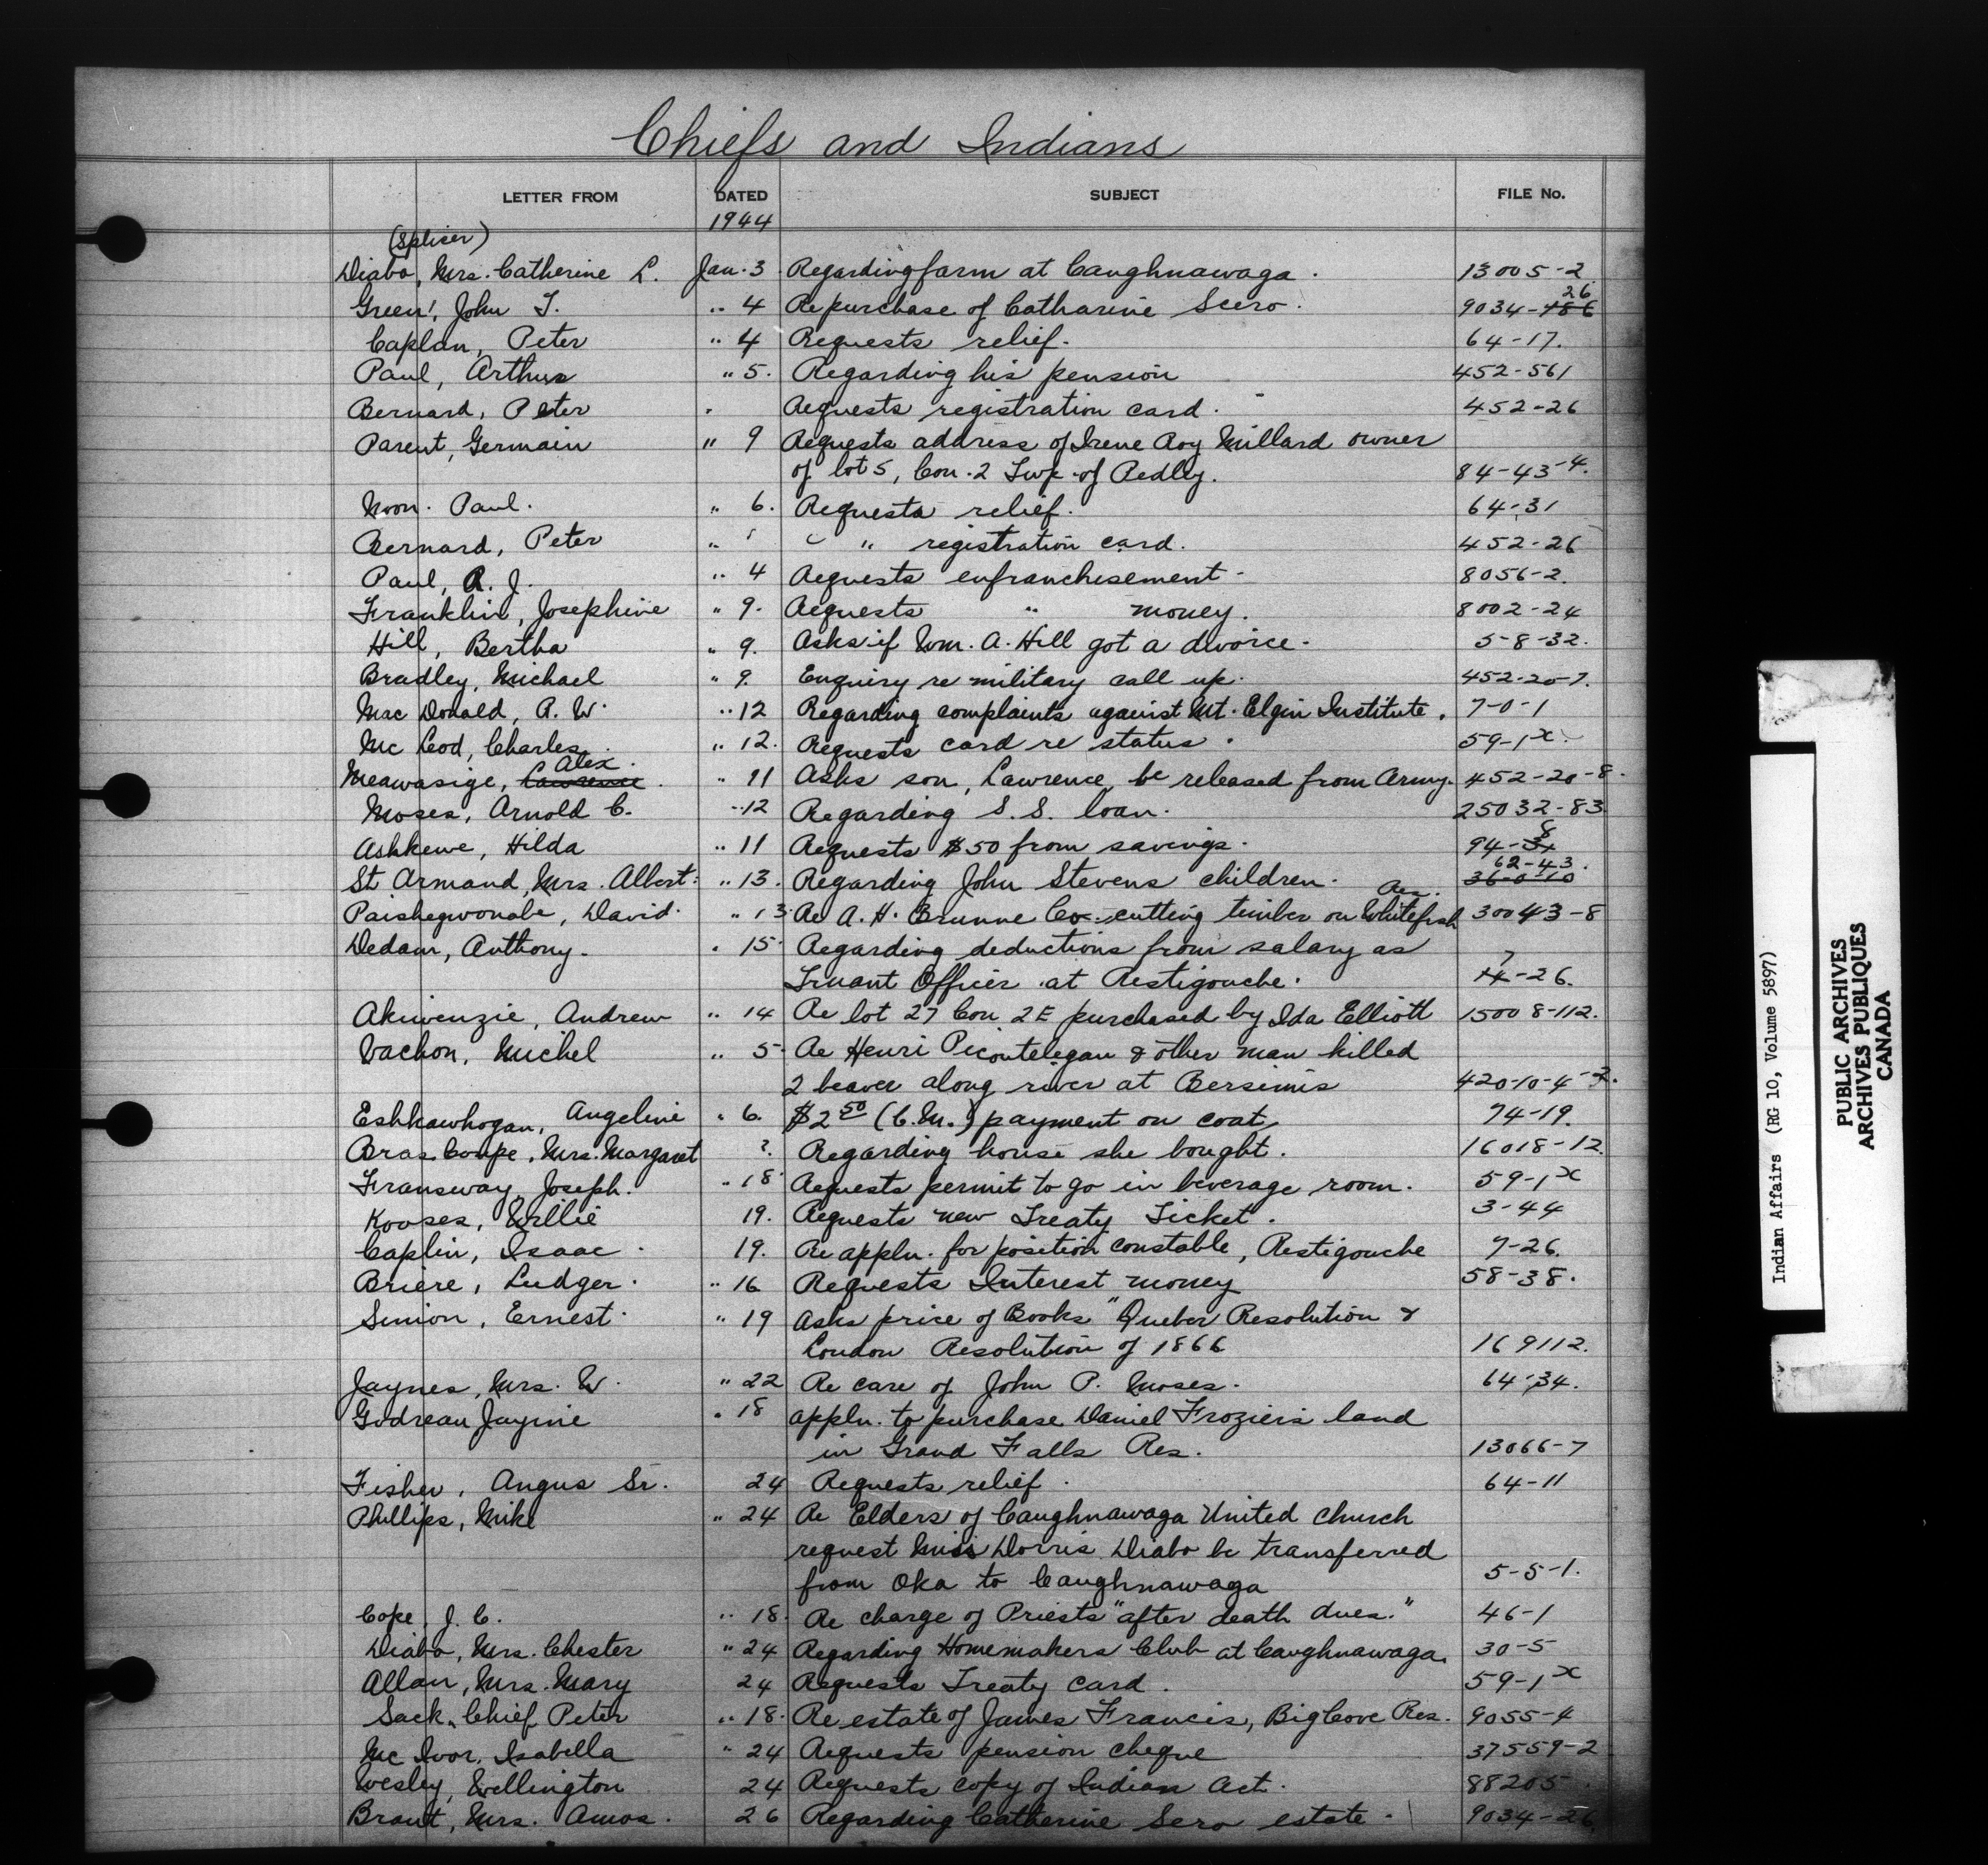 Chiefs and Indians
LETTER FROM DATED SUBJECT FILE No.
1944
(Splicer)
Diabo, Mrs. Catherine L. Jan. 3 Regarding farm at Caughnawaga. 13005-2
26
Green, John T. " 4 Re purchase of Catharine Scero. 9034-186
Caplan, Peter " 4 Requests relief. 64-17.
Paul, Arthur " 5. Regarding his pension 452-561
Bernard, Peter " Requests registration card. 452-26
Parent, Germain " 9 Requests address of Irene Roy Millard owner
of lot 5, Con. 2 Twp. of Pedley. 84-43-4.
Noon. Paul. " 6. Requests relief. 64-31
Bernard, Peter " " " registration card. 452-26
Paul, R. J. " 4 Requests enfranchisement. 8056-2.
Franklin, Josephine " 9. Requests " money. 8002-24
Hill, Bertha " 9. Asks if Wm. A. Hill got a divorce. 5-8-32.
Bradley, Michael " 9. Enquiry re military call up. 452-20-7.
Mac Donald, R. W. " 12 Regarding complaints against Mt. Elgin Institute. 7-0-1
Mc Leod, Charles. " 12. Requests card re status. 59-1x
Alex.
Meawasige, Lawrence. " 11 Asks son, Lawrence, be released from Army. 452-20-8.
Moses, Arnold C. " 12 Regarding S.S. loan. 25032-83
8
Ashkewe, Hilda " 11 Requests $50 from savings. 94-34
62-43.
St Armand, Mrs. Albert. " 13. Regarding John Stevens children. 36-0-10
Res.
Paishegwonabe, David. " 13. Re A. H. Brunne Co. cutting timber on Whitefish 30043-8
Dedam, Anthony. " 15. Regarding deductions from salary as
7
Truant Officer at Restigouche. 14-26.
Akiwenzie, Andrew " 14 Re lot 27 Con 2E purchased by Ida Elliott 15008-112.
Vachon, Michel " 5. Re Henri Picoutelegan & other man killed
2 beaver along river at Bersimis 420-10-4-2.
Eshkawhogan, Angeline " 6. $2 50 (C.M.) payment on coat, 74-19.
Bras Coupe, Mrs. Margaret ? Regarding house she bought. 16018-12.
Fransway, Joseph. " 18. Requests permit to go in beverage room. 59-1x
Kooses, Willie 19. Requests new Treaty Ticket. 3-44
Caplin, Isaac. 19. Re appln. for position constable, Restigouche 7-26.
Briere, Ludger. " 16 Requests Interest money 58-38.
Simon, Ernest. " 19 Asks price of Books "Quebec Resolution &
London Resolution of 1866 169112.
Jaynes, Mrs. W. " 22 Re care of John P. Moses. 64-34.
Godreau Jaynie " 18 appln. to purchase Daniel Frozier's land
in Grand Falls Res. 13066-7
Fisher, Angus Sr. 24 Requests relief. 64-11
Phillips, Mike " 24 Re Elders of Caughnawaga United Church
request Miss Dorris Diabo be transferred
from Oka to Caughnawaga 5-5-1.
Cope, J. C. " 18. Re charge of Priests "after death dues." 46-1
Diabo, Mrs. Chester " 24 Regarding Homemakers Club at Caughnawaga. 30-5
Allan, Mrs. Mary 24 Requests Treaty Card. 59-1x
Sack, Chief Peter " 18. Re estate of James Francis, Big Cove Res. 9055-4
Mc Ivor, Isabella " 24 Requests pension cheque 37559-2
Wesley, Wellington 24 Requests copy of Indian Act. 88205.
Brant, Mrs. Amos. 26 Regarding Catherine Sero estate. 9034-26.
Indian Affairs (RG 10, Volume 5897)
PUBLIC ARCHIVES
ARCHIVES PUBLIQUES
CANADA